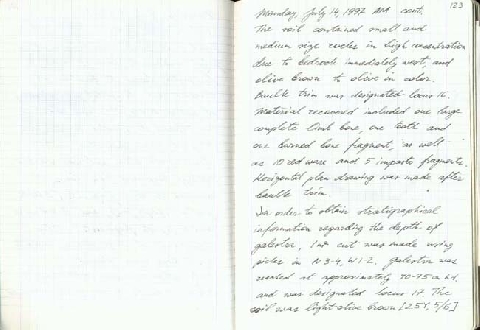 123
Monday, July 14, 1997 cont.
The soil contained small and
medium size rocks in high concentration
due to bedrock immediately west, and
olive brown to olive in color.
Baulk trim was designated locus 16.
Material recovered included one large
complete limb bone, one tooth and
one burned bone fragment, as well
as 10 red ware and 5 impasto fragments.
Horizontal plan drawing was made after
baulk trim.
In order to obtain stratigraphical
information regarding the depth of
galestro, 1 m² cut was made using
picks in N 3-4, W 1-2. Galestro was
reached at approximately 70-75 cm
and was designated locus 17. The
soil was light olive brown [2.5Y, 5/6]